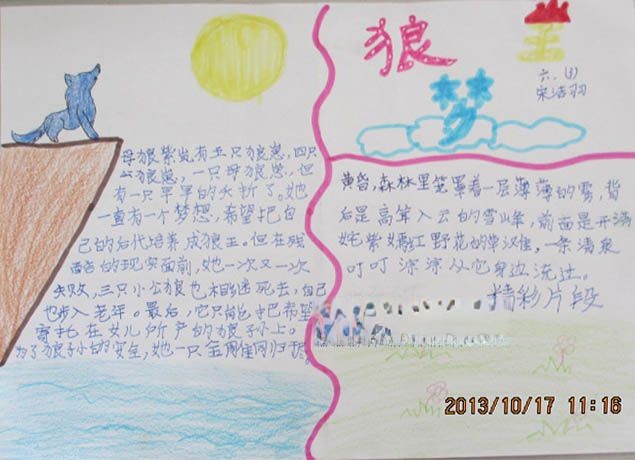 狼王
梦
六.(3)
宋洁羽
母狼紫岚有五只狼崽,四只
公狼崽,一只母狼崽,但
有一只早早的夭折了。她
一直有一个梦想,希望把自
己的后代培养成狼王。但在残
酷的现实面前,她一次又一次
失败,三只小公狼也相继死去,自己
也步入老年。最后,它只能把希望
寄托在女儿所产的狼孙上。
为了狼孙的安全,她一只金雕同归于
黄昏,森林里笼罩着一层薄薄的雾,背
后是高耸入云的雪峰,前面是开满
姹紫嫣红野花的草,一条清泉
叮叮淙淙从它身边流过。
精彩片段
2013/10/17 11:16